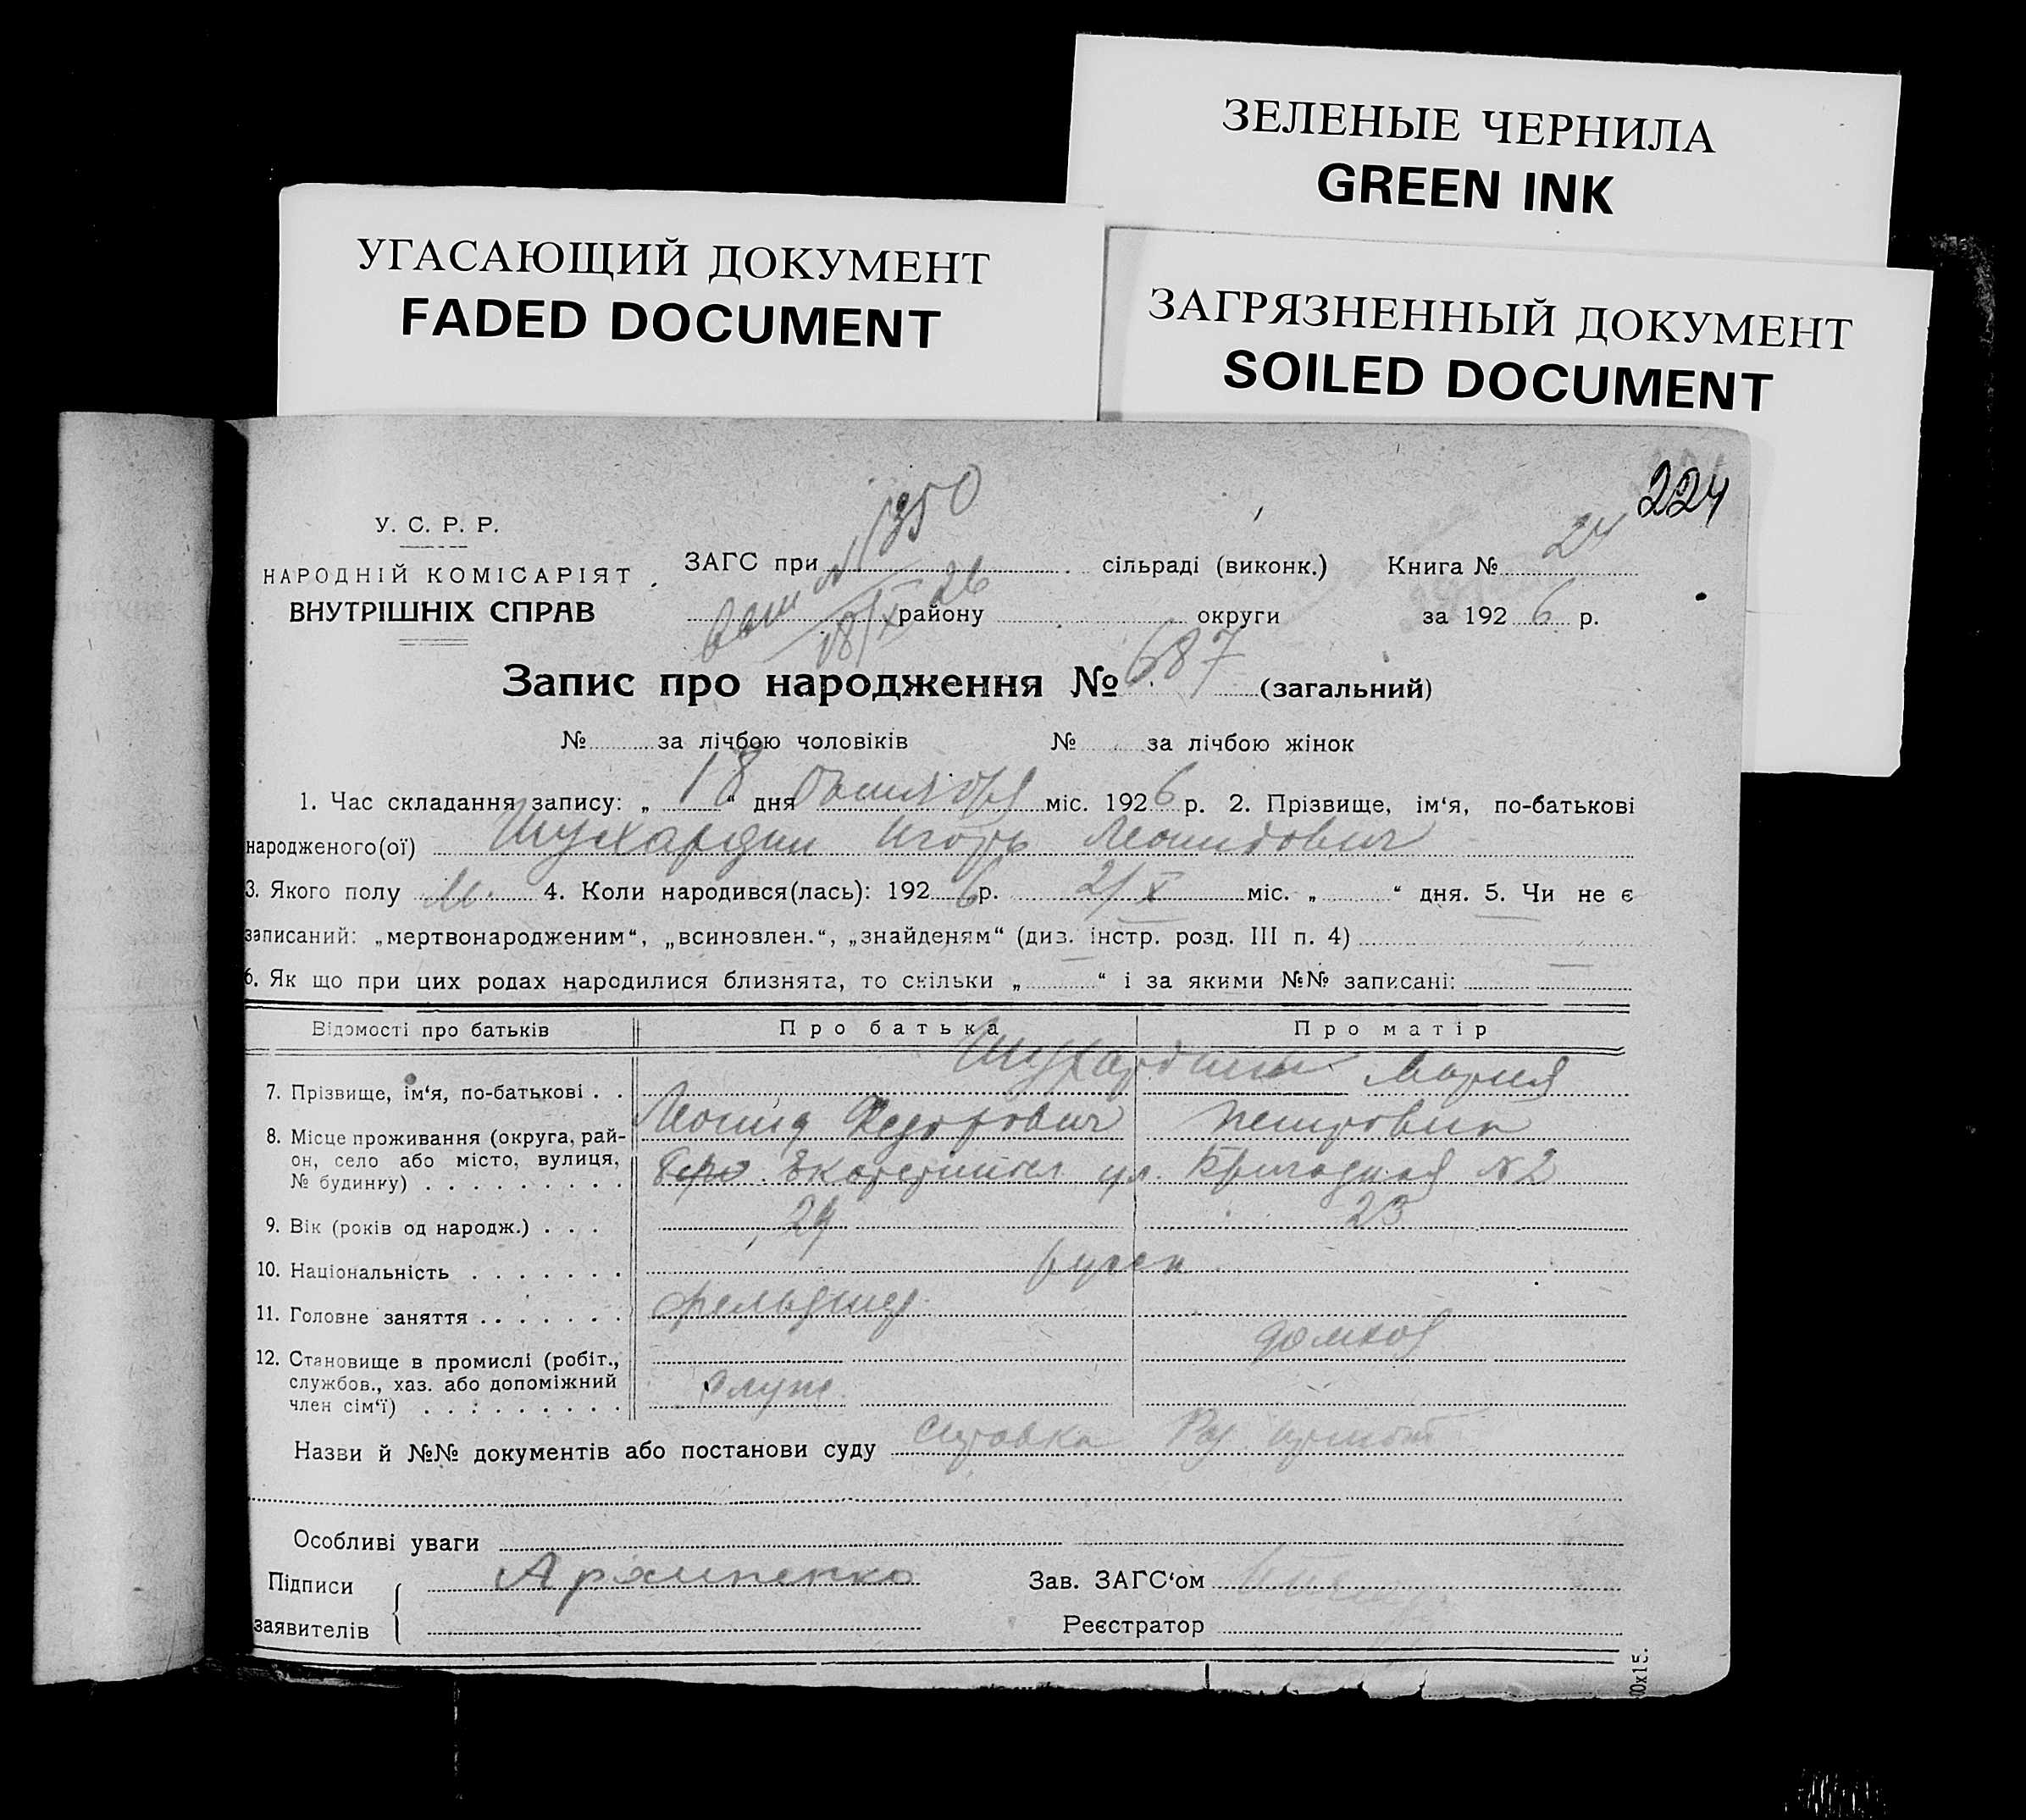 ЗЕЛЕНЫЕ ЧЕРНИЛА
GREEN INK
УГАСАЮЩИЙ ДОКУМЕНТ
FADED DOCUMENT
ЗАГРЯЗНЕННЫЙ ДОКУМЕНТ
SOILED DOCUMENT
224
У. С. Р. Р.
НАРОДНІЙ КОМІСАРІЯТ
ВНУТРІШНІХ СПРАВ
ЗАГС при сільраді (виконк.) Книга № 24
району округи за 1926 р.
№ 1350
18/X 26
Запис про народження № 687 (загальний)
№ за лічбою чоловіків № за лічбою жінок
1. Час складання запису: „ 18 “ дня Октября міс. 1926 р. 2. Прізвище, ім‘я, по-батькові
народженого(ої) Шухардин Игорь Леонидович
3. Якого полу М. 4. Коли народився(лась): 1926 р. 2/X міс. „ “ дня. 5. Чи не є
записаний: „мертвонародженим“, „всиновлен.“, „знайденям“ (див. інстр. розд. III п. 4)
6. Як що при цих родах народилися близнята, то скільки „ “ і за якими №№ записані:
Відомості про батьків Про батька Про матір
7. Прізвище, ім‘я, по-батькові . . Шухардины Мария
Леонид Федорович Петровна
8. Місце проживання (округа, рай-
он, село або місто, вулиця,
№ будинку) . . . . . . . . . ул. Пригодная № 2
9. Вік (років од народж.) . . . 24 23
10. Національність . . . . . . . русск
11. Головне заняття . . . . . . . фельдшер
домхоз
12. Становище в промислі (робіт.,
службов., хаз. або допоміжний
член сім‘ї) . . . . . . . . . служ.
Назви й №№ документів або постанови суду справка
Особливі уваги
Підписи Архипенко Зав. ЗАГС‘ом
заявителів Реєстратор